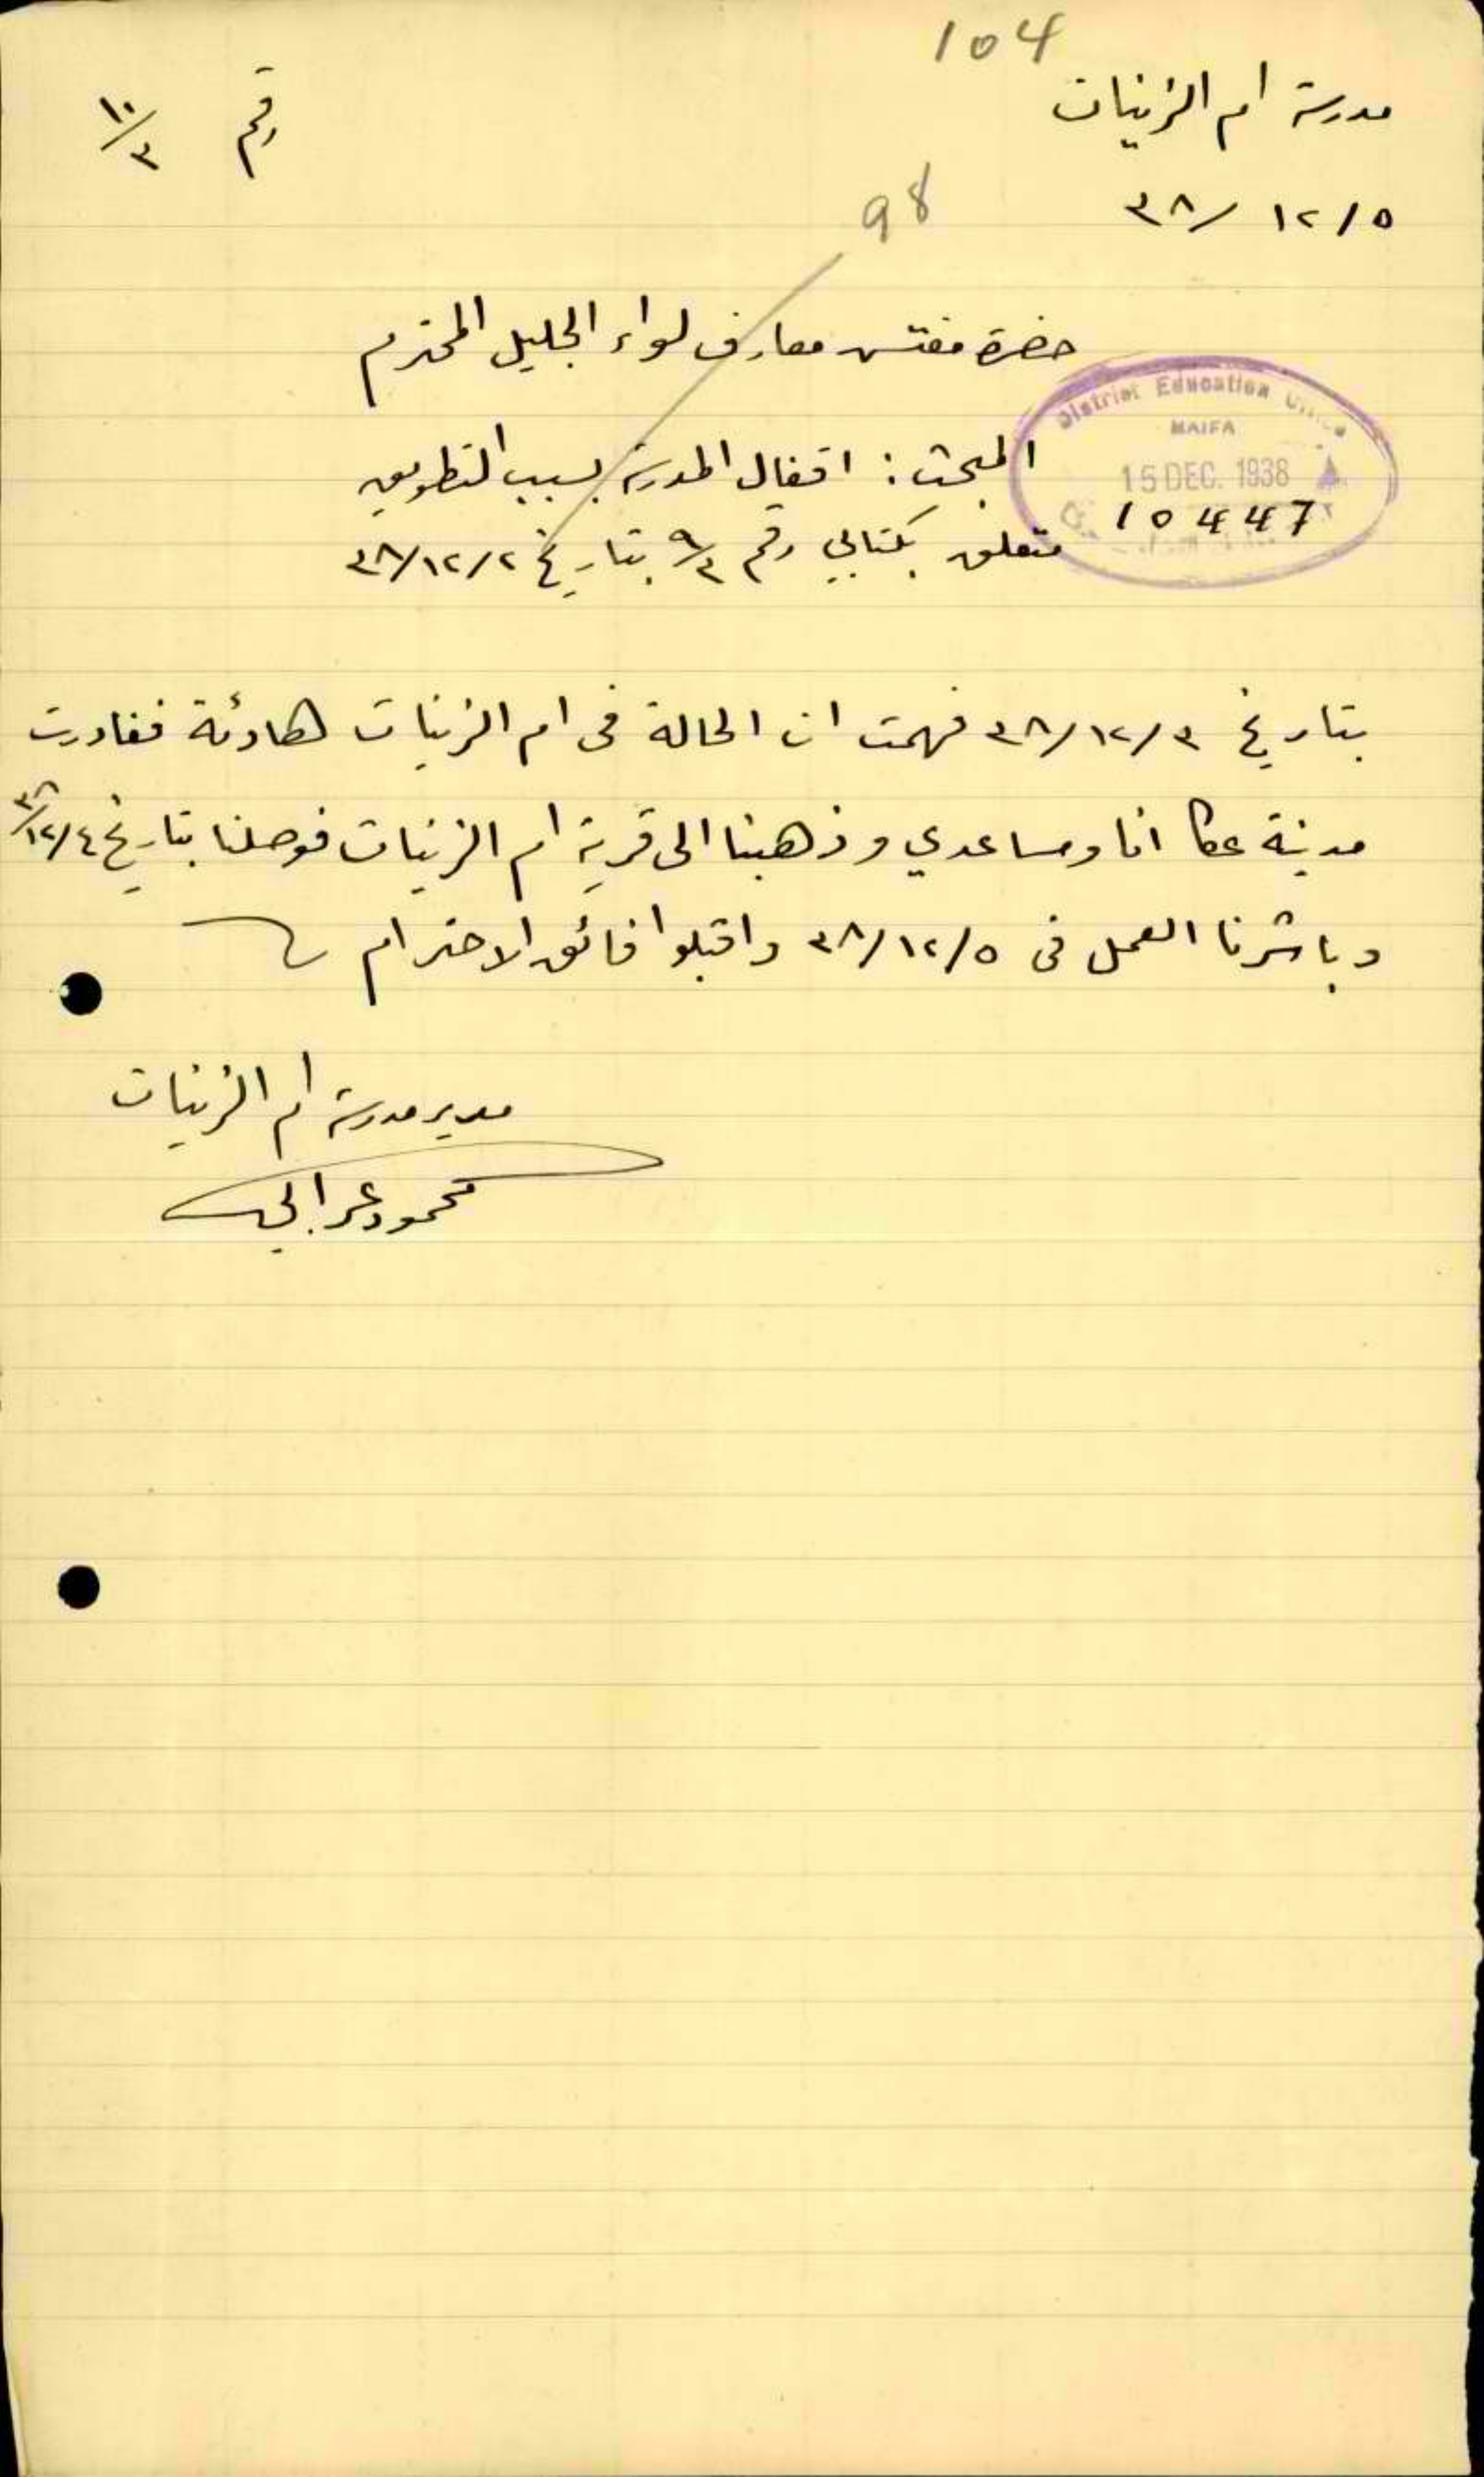 104
مدرسة ام الزينات
رقم ١٠/٣
٥/١٢/٣٨
98
حضرة مفتش معارف لواء الجليل المحترم
District Education Office
HAIFA
15 DEC. 1938
10447
المبحث: اقفال المدرسة بسبب التطويق
متعلق بكتابي رقم ٩/٣ بتاريخ ٢/١٢/٣٨
بتاريخ ٣/١٢/٣٨ فهمت ان الحالة في ام الزينات هادئة فغادرت
مدينة عكا انا ومساعدي وذهبنا الى قرية ام الزينات فوصلنا بتاريخ ٤/١٢/٣٨
وباشرنا العمل في ٥/١٢/٣٨ واقبلوا فائق الاحترام
مدير مدرسة ام الزينات
محمود عرابي